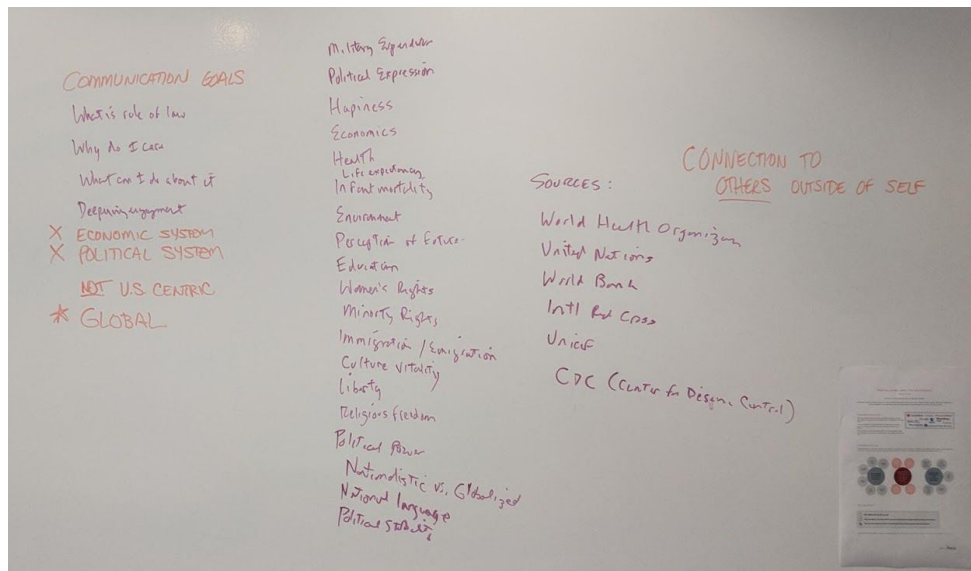 COMMUNICATION GOALS
What is rule of law
Why do I care
What can I do about it
Deepening engagement
X ECONOMIC SYSTEM
X POLITICAL SYSTEM
NOT U.S. CENTRIC
* GLOBAL
Military Expenditure
Political Expression
Hapiness
Economics
Health
Life expectancy
Infant mortality
Environment
Perception of Future
Education
Women's Rights
Minority Rights
Immigration / Emigration
Culture Vitality
Liberty
Religious freedom
Political Power
Nationalistic vs. Globalized
National language
Political Stability
SOURCES:
World Health Organization
United Nations
World Bank
Intl Red Cross
Unicef
CDC (Center for Disease Control)
CONNECTION TO
OTHERS OUTSIDE OF SELF